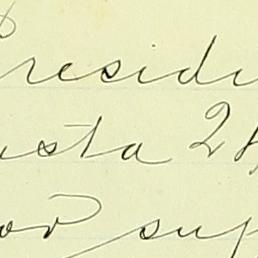 Presidi
usta 24
or sup